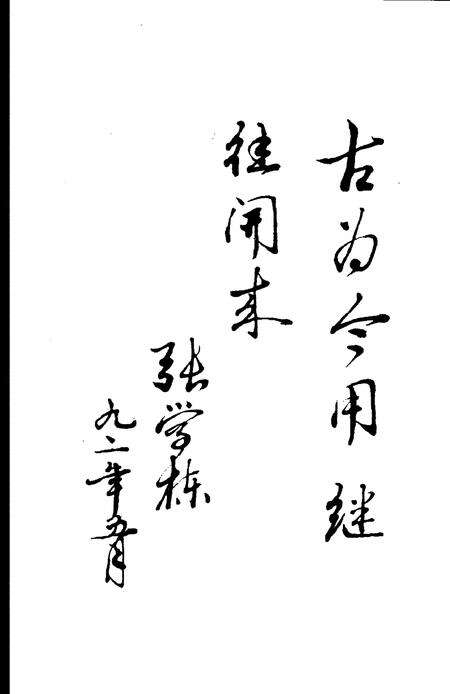 古为今用 继
往开来
张学栋
九二年五月